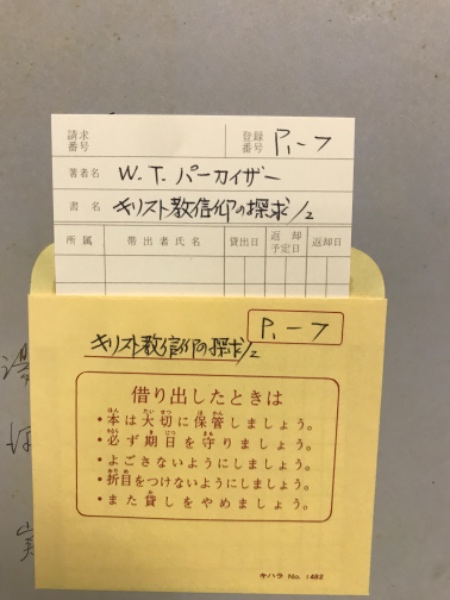 請求番号
登録番号 P1-7
著者名 W.T. パーカイザー
書名 キリスト教信仰の探求/2
所属 帯出者氏名 貸出日 返却予定日 返却日
P1-7
キリスト教信仰の探求/2
借り出したときは
•本は大切に保管しましょう。
•必ず期日を守りましょう。
•よごさないようにしましょう。
•折目をつけないようにしましょう。
•また貸しをやめましょう。
キハラ No. 1482